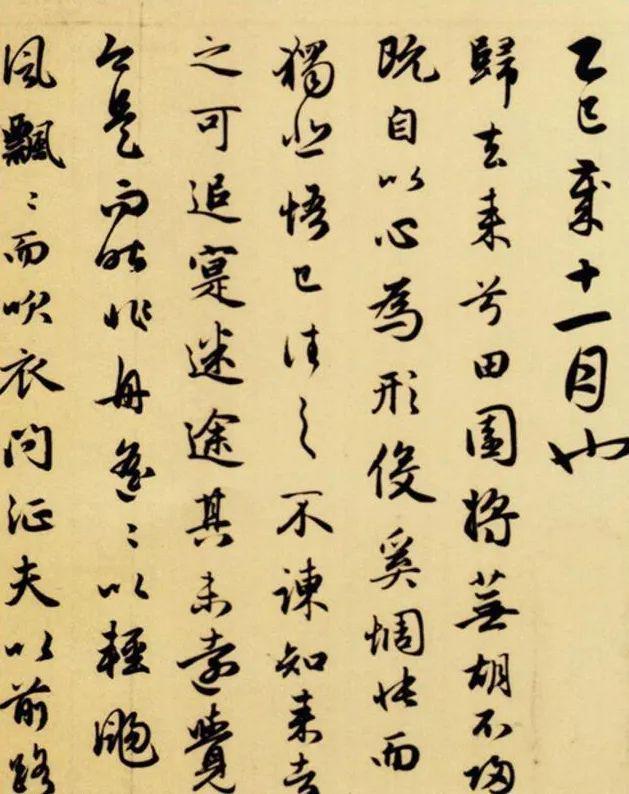 乙巳歲十一月也
歸去来兮田園将蕪胡不歸
既自以心為形役奚惆悵而
獨悲悟已往之不諫知来者
之可追寔迷途其未遠覺
今是而昨非舟遥々以輕颺
風飄々而吹衣問征夫以前路